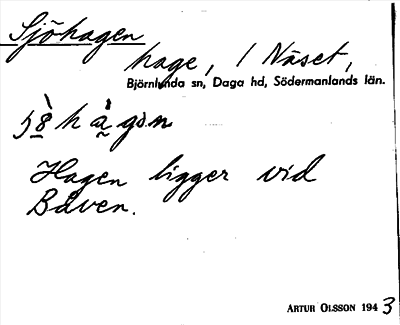 Sjöhagen
hage, / Näset,
Björnlunda sn, Daga hd, Södermanlands län.
Hagen ligger vid
Båven.
ARTUR OLSSON 1943